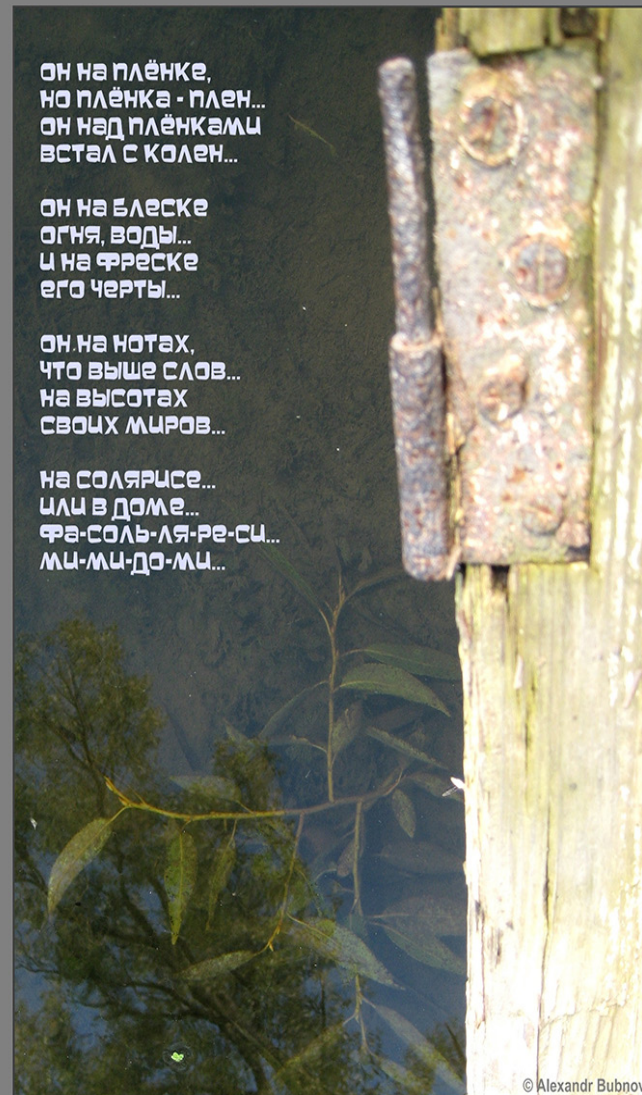 он на плёнке,
но плёнка - плен...
он над плёнками
встал с колен...
он на блеске
огня, воды...
и на фреске
его черты...
он на нотах,
что выше слов...
на высотах
своих миров...
на солярисе...
или в доме...
фа-соль-ля-ре-си...
ми-ми-до-ми...
© Alexandr Bubnov